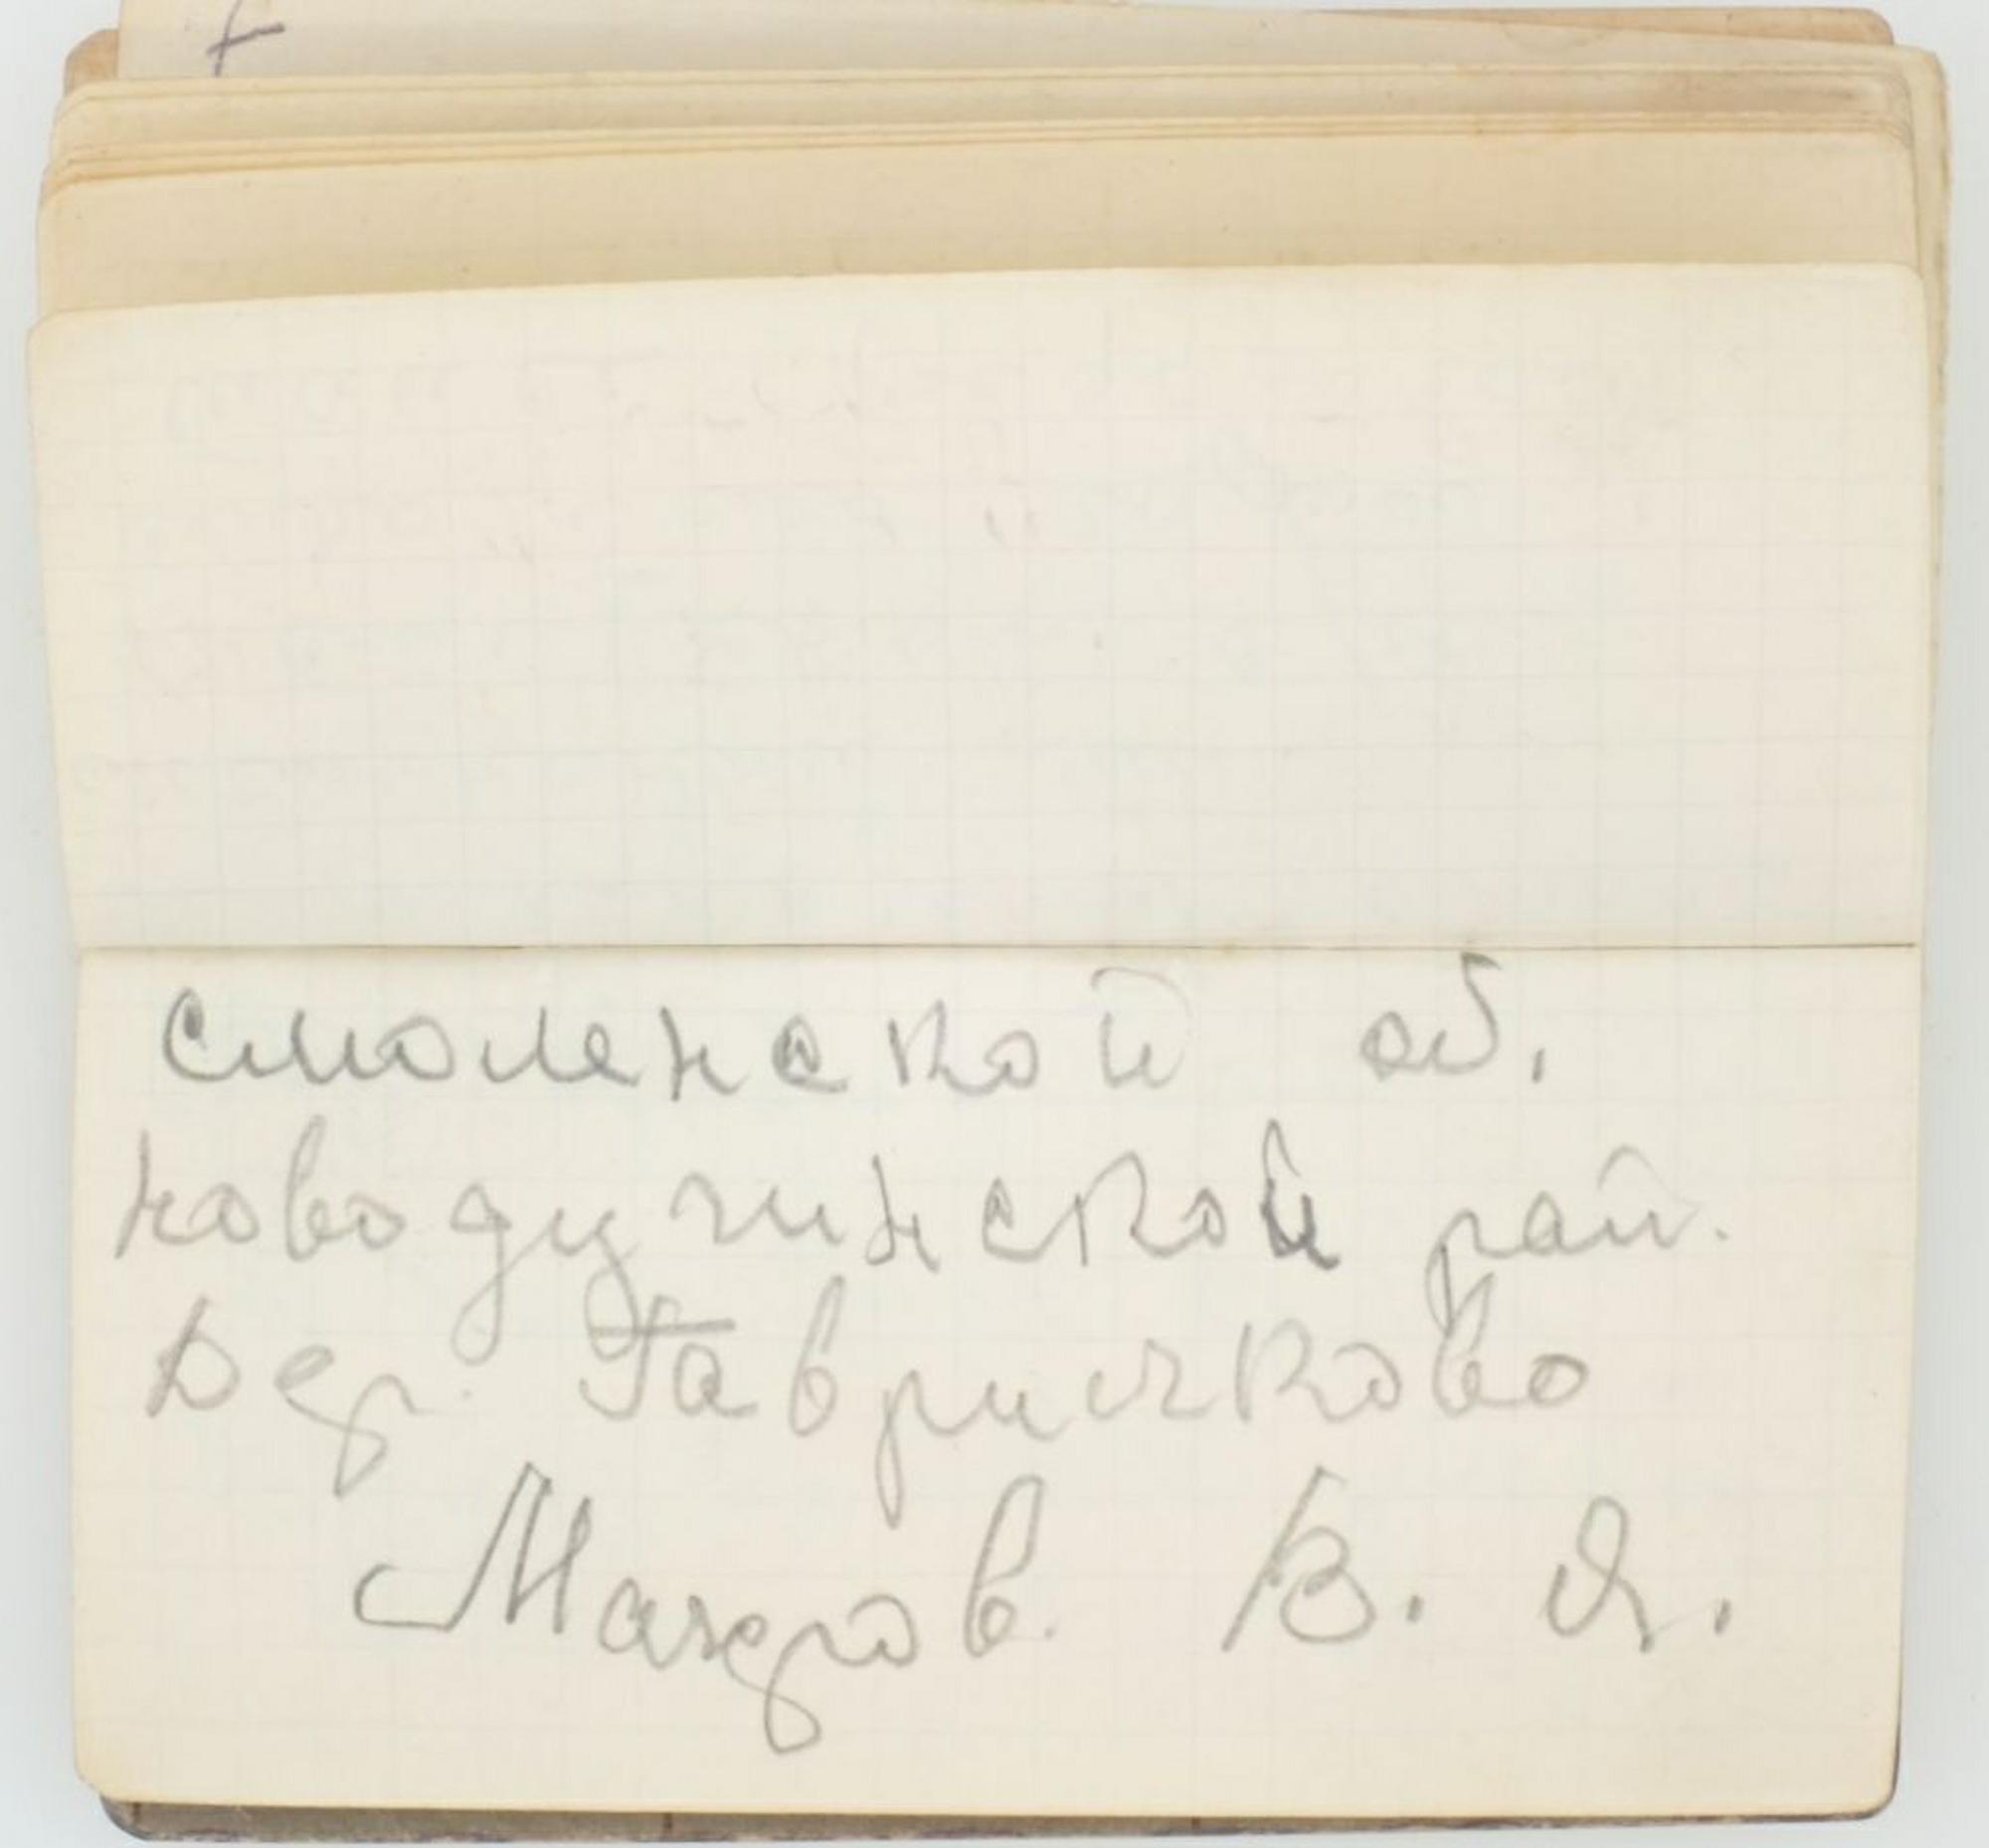 смоленской об.
новодугинской рай.
Дер. Гавричково
Мазеров. В. Я.